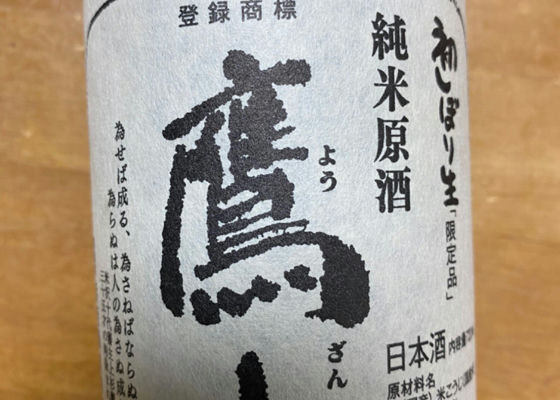 登録商標
初しぼり生「限定品」
純米原酒
鷹
よう
ざん
為せば成る、為さねばならぬ
為らぬは人の為さぬ成
日本酒
原材料名
米こうじ